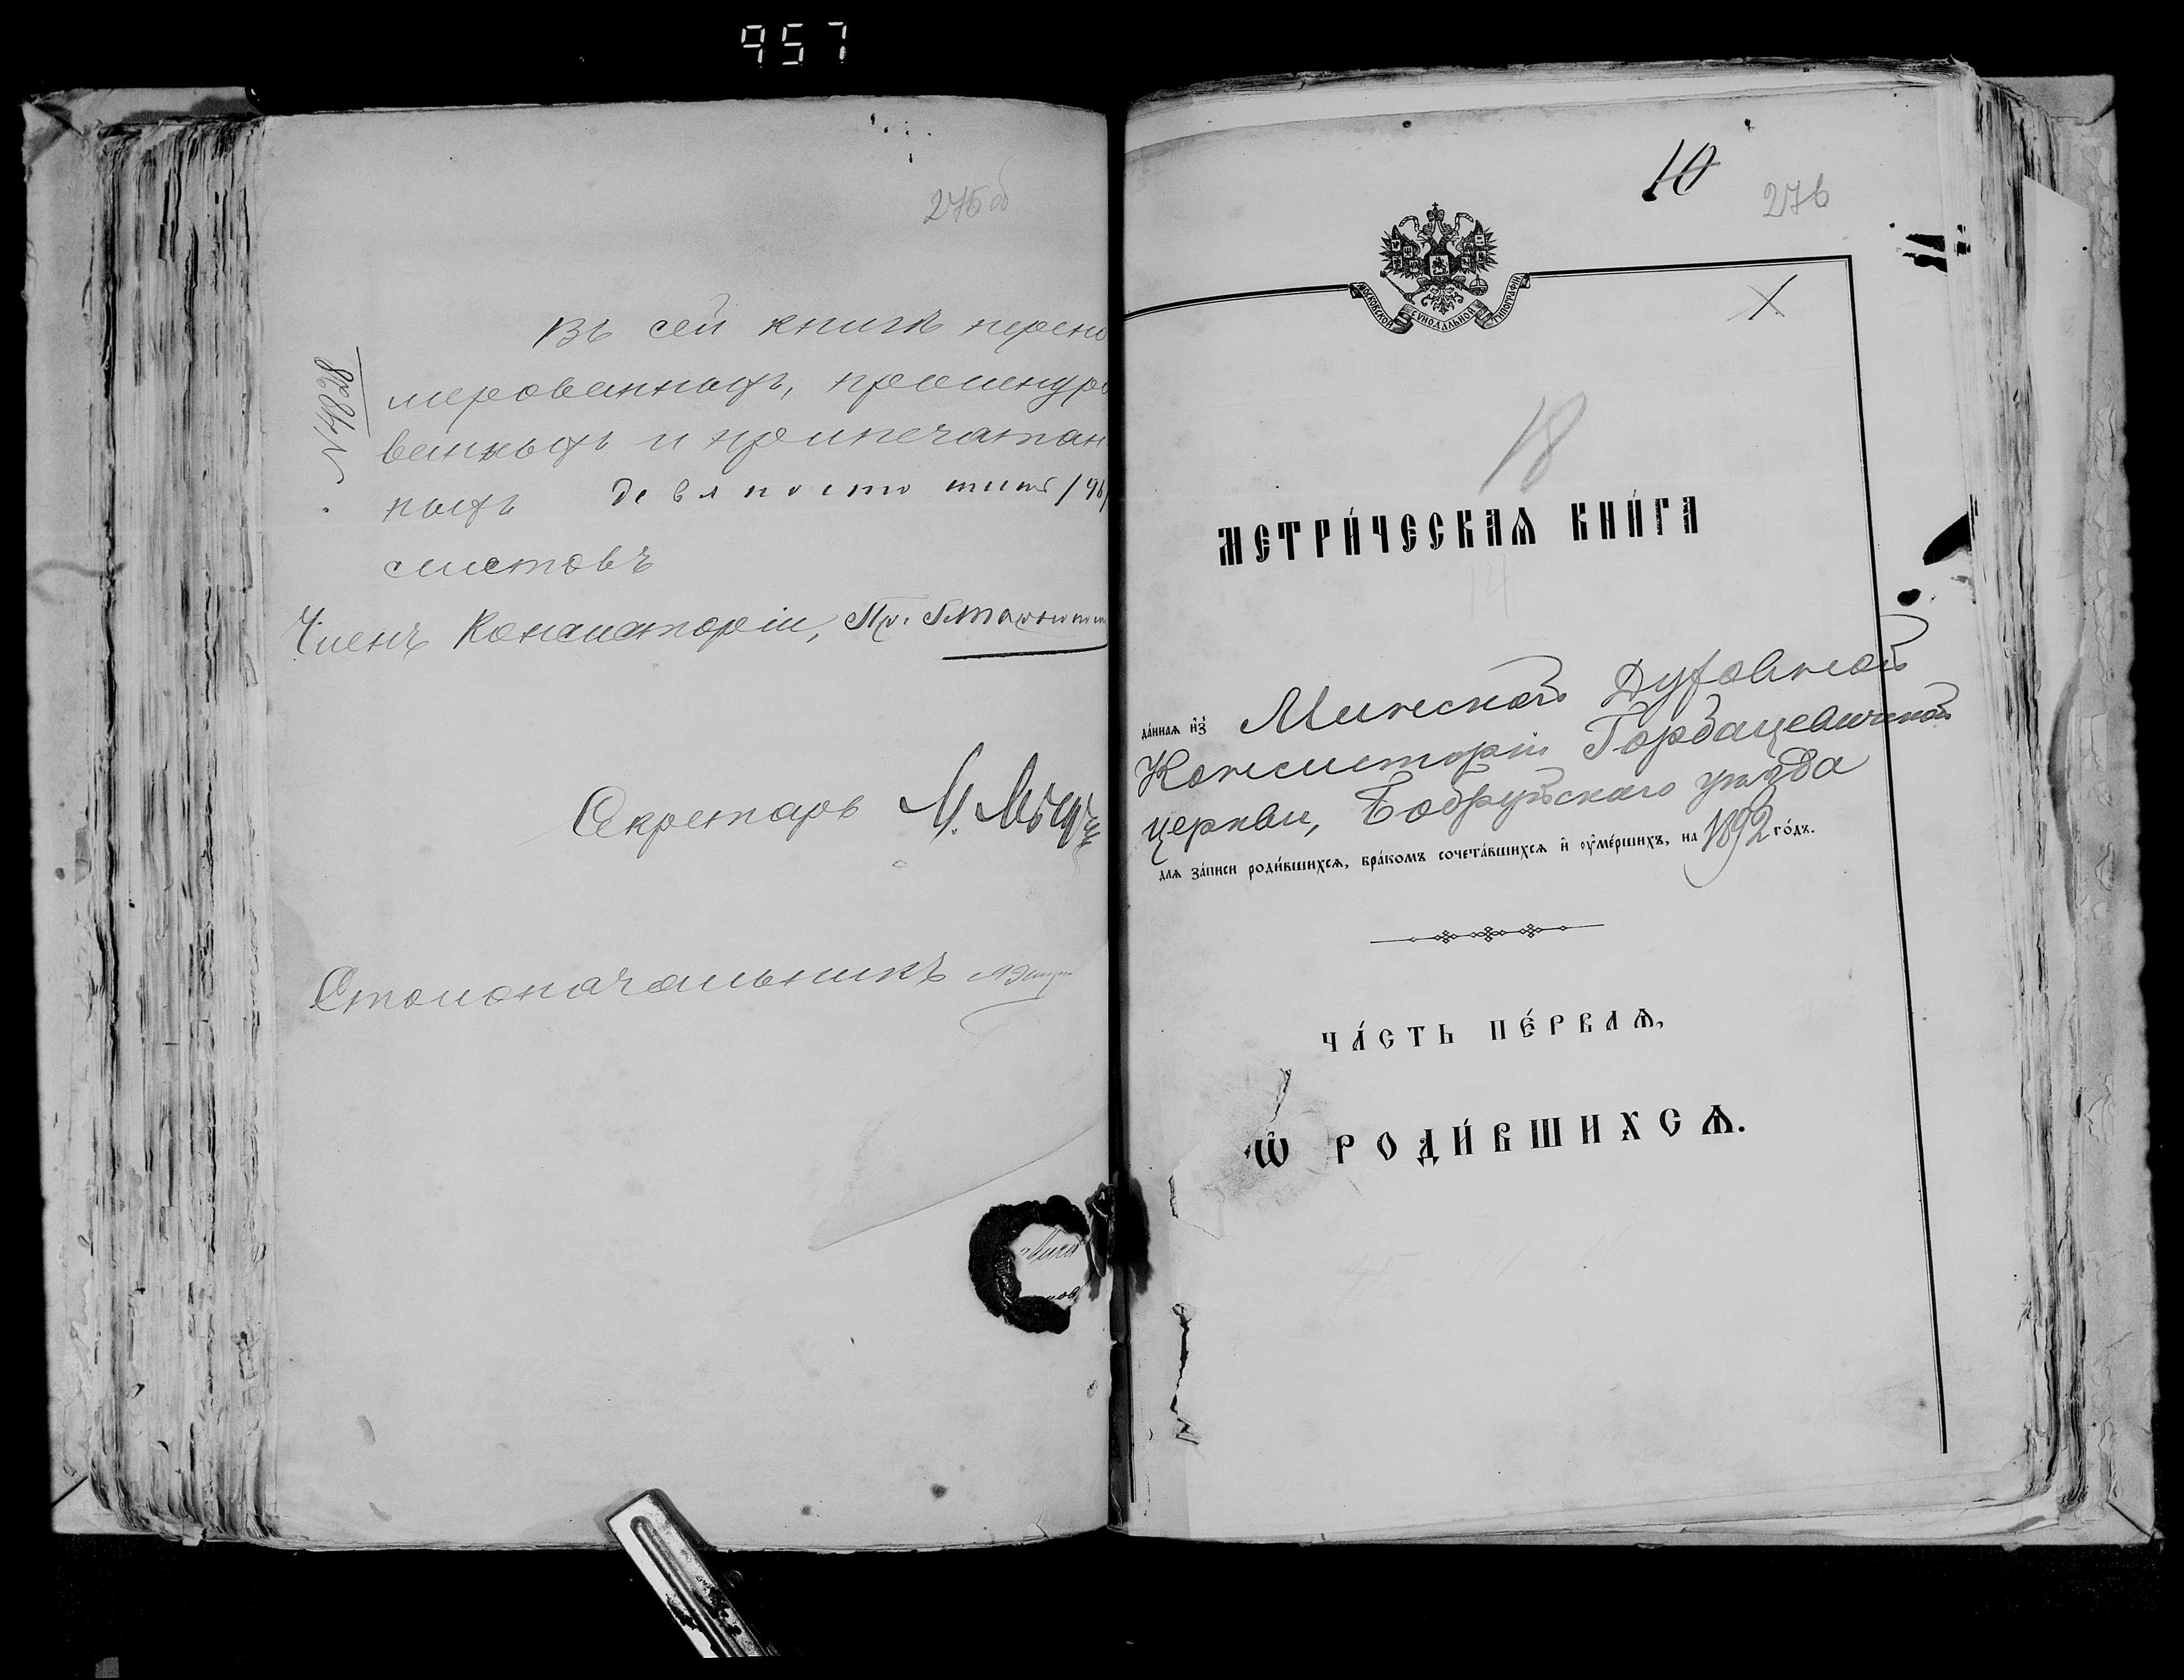 957
275 об
Въ сей книгѣ перено
мерованныхъ, прошнуро
ванныхъ и припечатан
ныхъ девяносто /96/
листовъ
№ 4828
Членъ Консисторіи, Пр.
Секретарь М.
Столоначальникъ
10
276
МОСКОВСКОЙ СѴНОДАЛЬНОЙ ТИПОГРАФІИ
X
18
МЕТРИ́ЧЕСКАѦ КНИ́ГА
14
да́ннаѧ и҆з̾ Минской Духовной
Консисторіи Горбацевичской
церкви, Бобруйскаго уѣзда
длѧ за́писи роди́вшихсѧ, бра́комъ сочета́вшихсѧ и҆ ᲂу҆ме́ршихъ, на 1892 го́дъ.
ЧА́СТЬ ПЕ́РВАѦ,
Ѽ РОДИ́ВШИХСѦ.